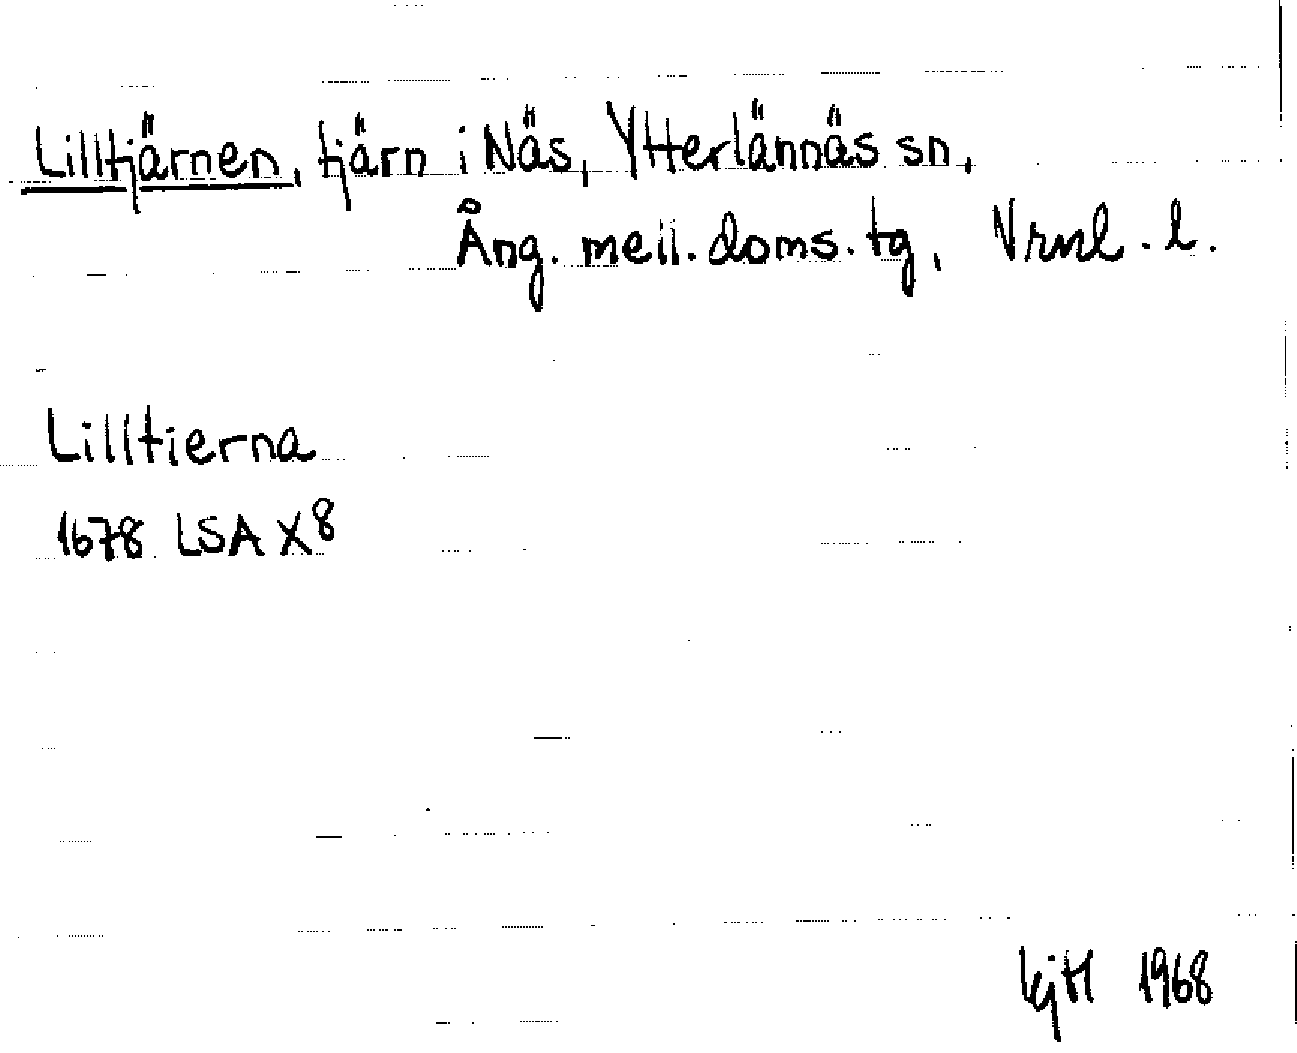 Lilltjärnen, tjärn i Näs, Ytterlännäs sn,
Ång. mell. doms. tg, Vrnl. l.
Lilltierna
1678 LSA X8
KjH 1968